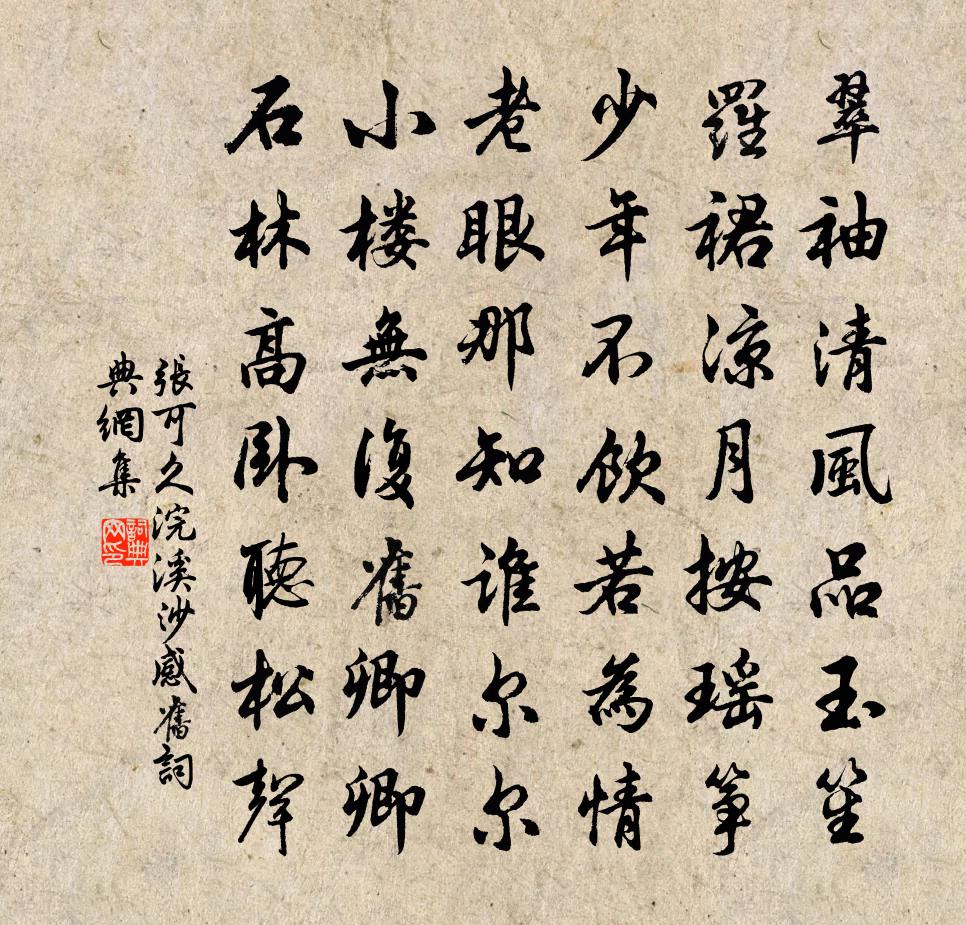 翠袖清風品玉笙
羅裙涼月按瑶箏
少年不飲若為情
老眼那知誰尔尔
小楼無復舊卿卿
石林高卧聽松聲
張可久浣溪沙感舊詞
典網集
詞典网印